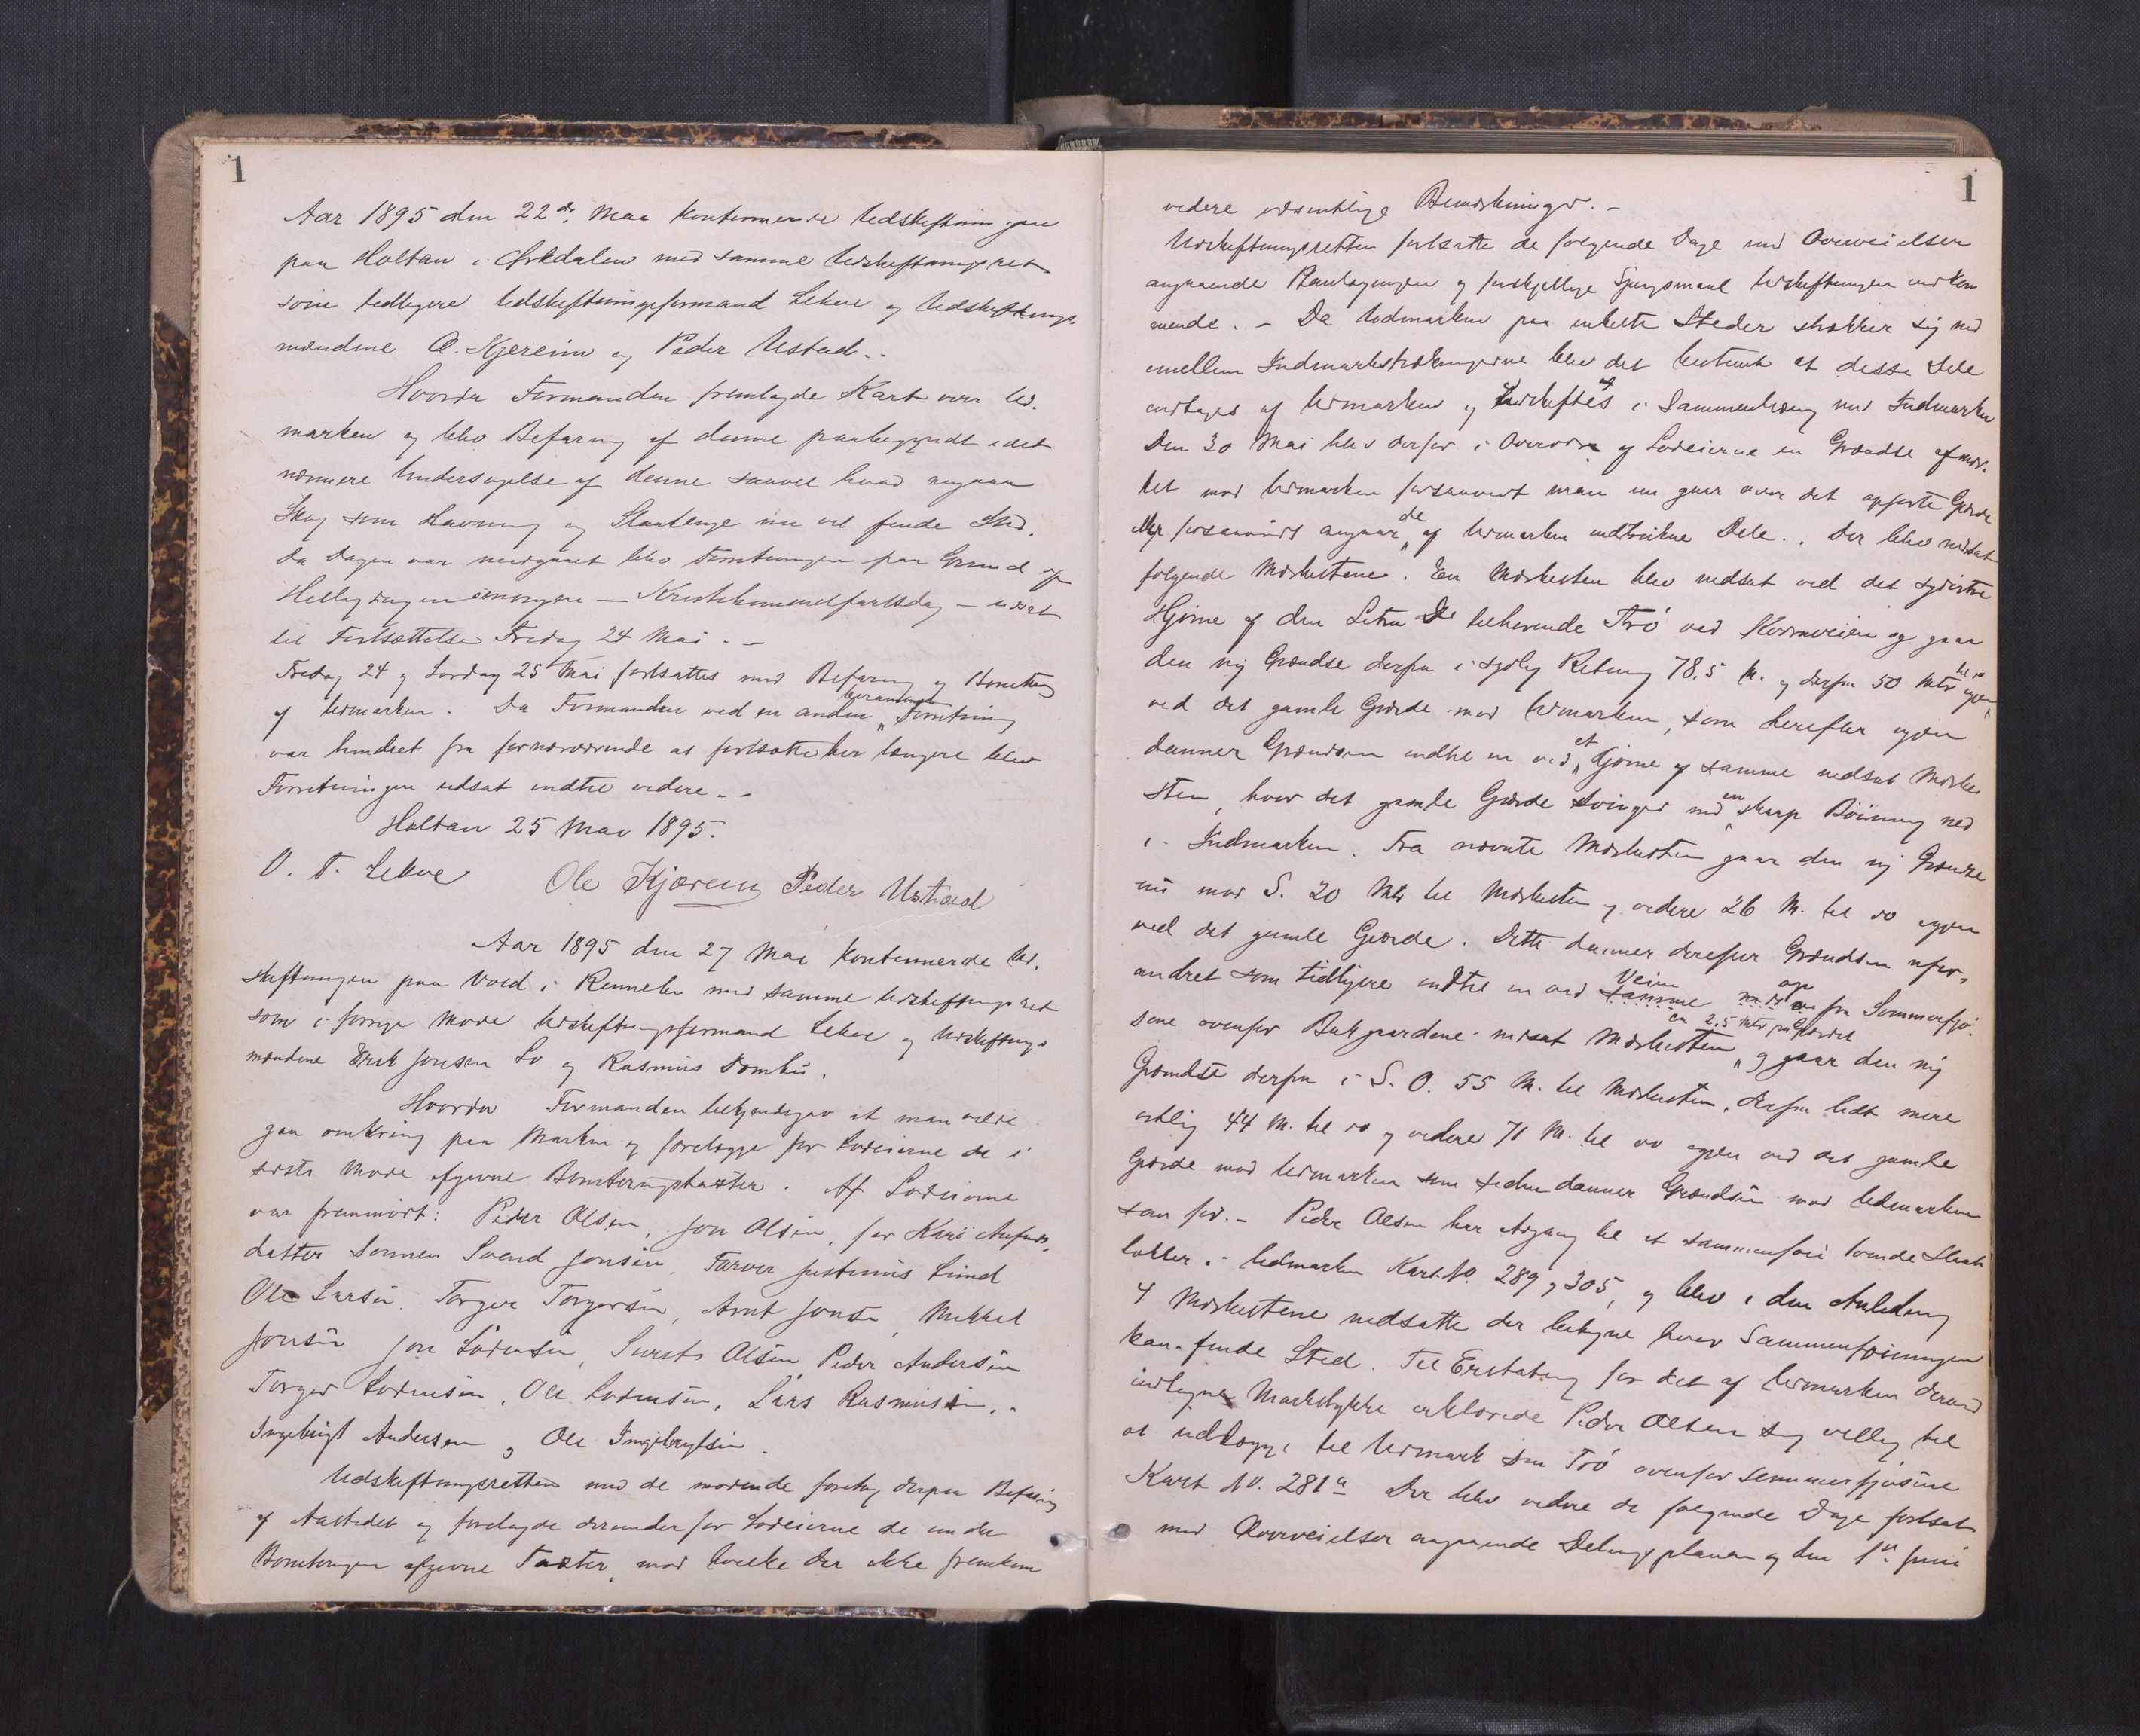 1
Aar 1895 den 22de Mai kontinuerede Udskiftningen
paa Holtan i Orkdalen med samme Udskiftningsret
som tidligere Udskiftningsformand Lekve og Udskiftnings-
mændene O. Kjereim og Peder Ustad..
Hvorda Formanden fremlagde Kart over Ud-
marken og blev Befaring af denne paabegyndt idet
nærmere Undersøgelse af denne saavel hvad angaar
Skog som Havning og Slaattenge nu vil finde Sted.
Da Dagen var nedgaaet blev Forretningen paa Grund af
Helligdagen imorgen — Kristihimmelfartsdag — udsat
til Fortsættelse Fredag 24 Mai. –
Fredag 24 og Lørdag 25 Mai fortsattes med Befaring og Bonitering
af Udmarken. Da Formanden ved en anden berammet Forretning
var hindret fra for nærværende at fortsætte her længere blev
Forretningen udsat indtil videre. –
Holtan 25 Mai 1895.
O. T. Lekve Ole Kjøreim Peder Ustad
Aar 1895 den 27 Mai kontinuerede Ud-
skiftningen paa Vold i Rennebu med samme Udskiftningsret
som i forrige Møde Udskiftningsformand Lekve og Udskiftnings
mændene Erik Jonsen Lo og Rasmus Dombu.
Hvorda Formanden bekjendtgav at man vilde
gaa omkring paa Marken og forelægge for Lodeierne de i
sidste Møde afgivne Boniteringstaxter. Af Lodeierne
var fremmødt: Peder Olsen, Jon Olsen, for Kari Arnfinds-
datter Sønnen Svend Jonsen, Farver Justinus Lund
Ole Larsen, Torger Torgersen, Arnt Jonsen, Mikkel
Jonsen Jon Sørensen, Sivert Olsen Peder Andersen
Torger Lorensen, Ole Lorensen, Lars Rasmussen,
Ingebrigt Andersen og Ole Ingebrigtsen.
Udskiftningsretten med de mødende foretog derpaa Befaring
af Aastedet og forelagde derunder for Lodeierne de under
Boniteringen afgivne Taxter, mod hvilke der ikke fremkom
1
videre væsentlige Bemærkninger. –
Udskiftningsretten fortsatte de følgende Dage med Overveielser
angaaende Planlægningen og forskjellige Spørgsmaal Udskiftningen vedkom
mende. – Da Udmarken paa enkelte Steder strækker sig ned
imellem Indmarkstrækningerne blev det bestemt at disse Dele
indtages af Udmarken og udskiftes i Sammenhæng med Indmarken
Den 30 Mai blev derfor i Overvær af Lodeierne en Grændse afmær-
ket mod Udmarken forsaavidt man nu gaar over det opførte Gjerde
eller forsaavidt angaar de af Udmarken indtrukne Dele.. Der blev nedsat
følgende Merkestene. En Merkesten blev nedsat ved det sydøstre
Hjørne af den Litra De tilhørende Trø ved Kværnveien og gaar
den ny Grændse derfra i sydlig Retning 78,5 M. og derfra 50 Mtr til do igjen
ved det gamle Gjærde mod Udmarken, som herefter igjen
danner Grændsen indtil en ved et Hjørne af samme nedsat Merke
sten, hvor det gamle Gjærde svinger med en skarp Bøining ned
i Indmarken. Fra nævnte Merkesten gaar den ny Grændse
nu mod S. 20 Mtr til Merkesten og videre 26 M. til do igjen
ved det gamle Gjærde. Dette danner derefter Grændsen ufor-
andret som tidligere indtil en ved samme Veien op fra Sommerfjø-
sene ovenfor Bakgaardene nedsat Merkesten ca 2,5 Mtr fra Gjærdet og gaar den ny
Grændse derfra i S. O. 55 M. til Merkesten, derfra lidt mere
østlig 44 M. til do og videre 71 M. til do igjen ved det gamle
Gjærde mod Udmarken som siden danner Grændsen mod Udmarken
som før. – Peder Olsen har Adgang til at sammenføie tvende Slaatte
lokker i Udmarken Kart No. 289 og 305, og blev i den Anledning
4 Merkestene nedsatte der betegne hvor Sammenføiningen
kan finde Sted. Til Erstatning for det af Udmarken derved
indtagne Markstykke erklærede Peder Olsen sig villig til
at udlægge til Udmark sin Trø ovenfor Sommerfjøsene
Kart No. 281a Der blev videre de følgende Dage fortsat
med Overveielser angaaende Delingsplanen og den 1ste Juni